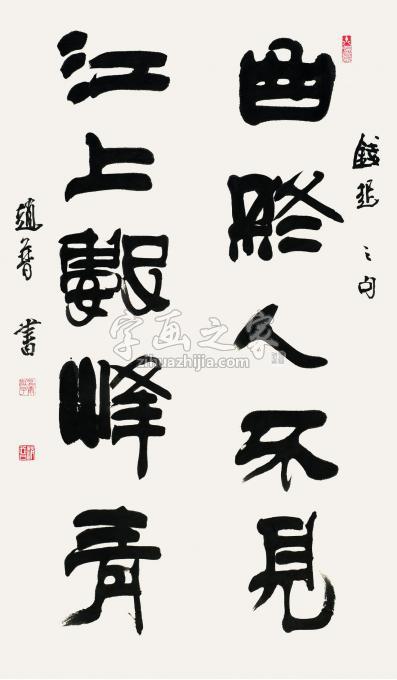 錢起之句
曲終人不見
江上數峰青
趙普書
字画之家
zihuazhijia.com